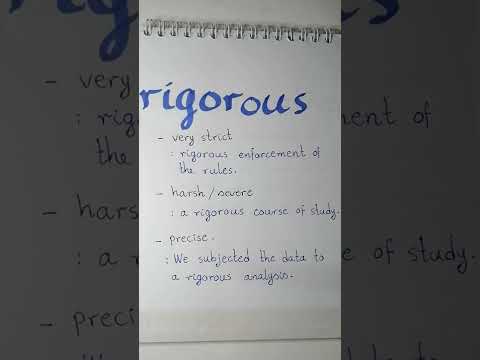 rigorous
- very strict
: rigorous enforcement of
the rules.
- harsh / severe
: a rigorous course of study.
- precise.
: We subjected the data to
a rigorous analysis.